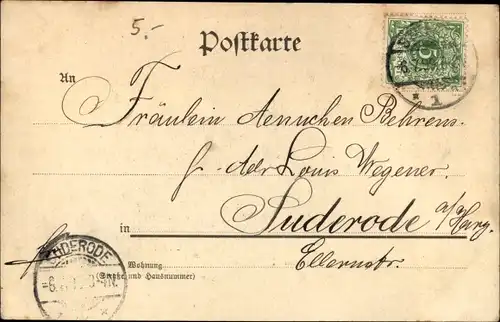 5.-
Postkarte
An
Fräulein Aennchen Behrens.
Louis Wegener.
in Suderode a/Harz.
Ellernstr.
Wohnung
(Straße und Hausnummer)
SUDERODE
1